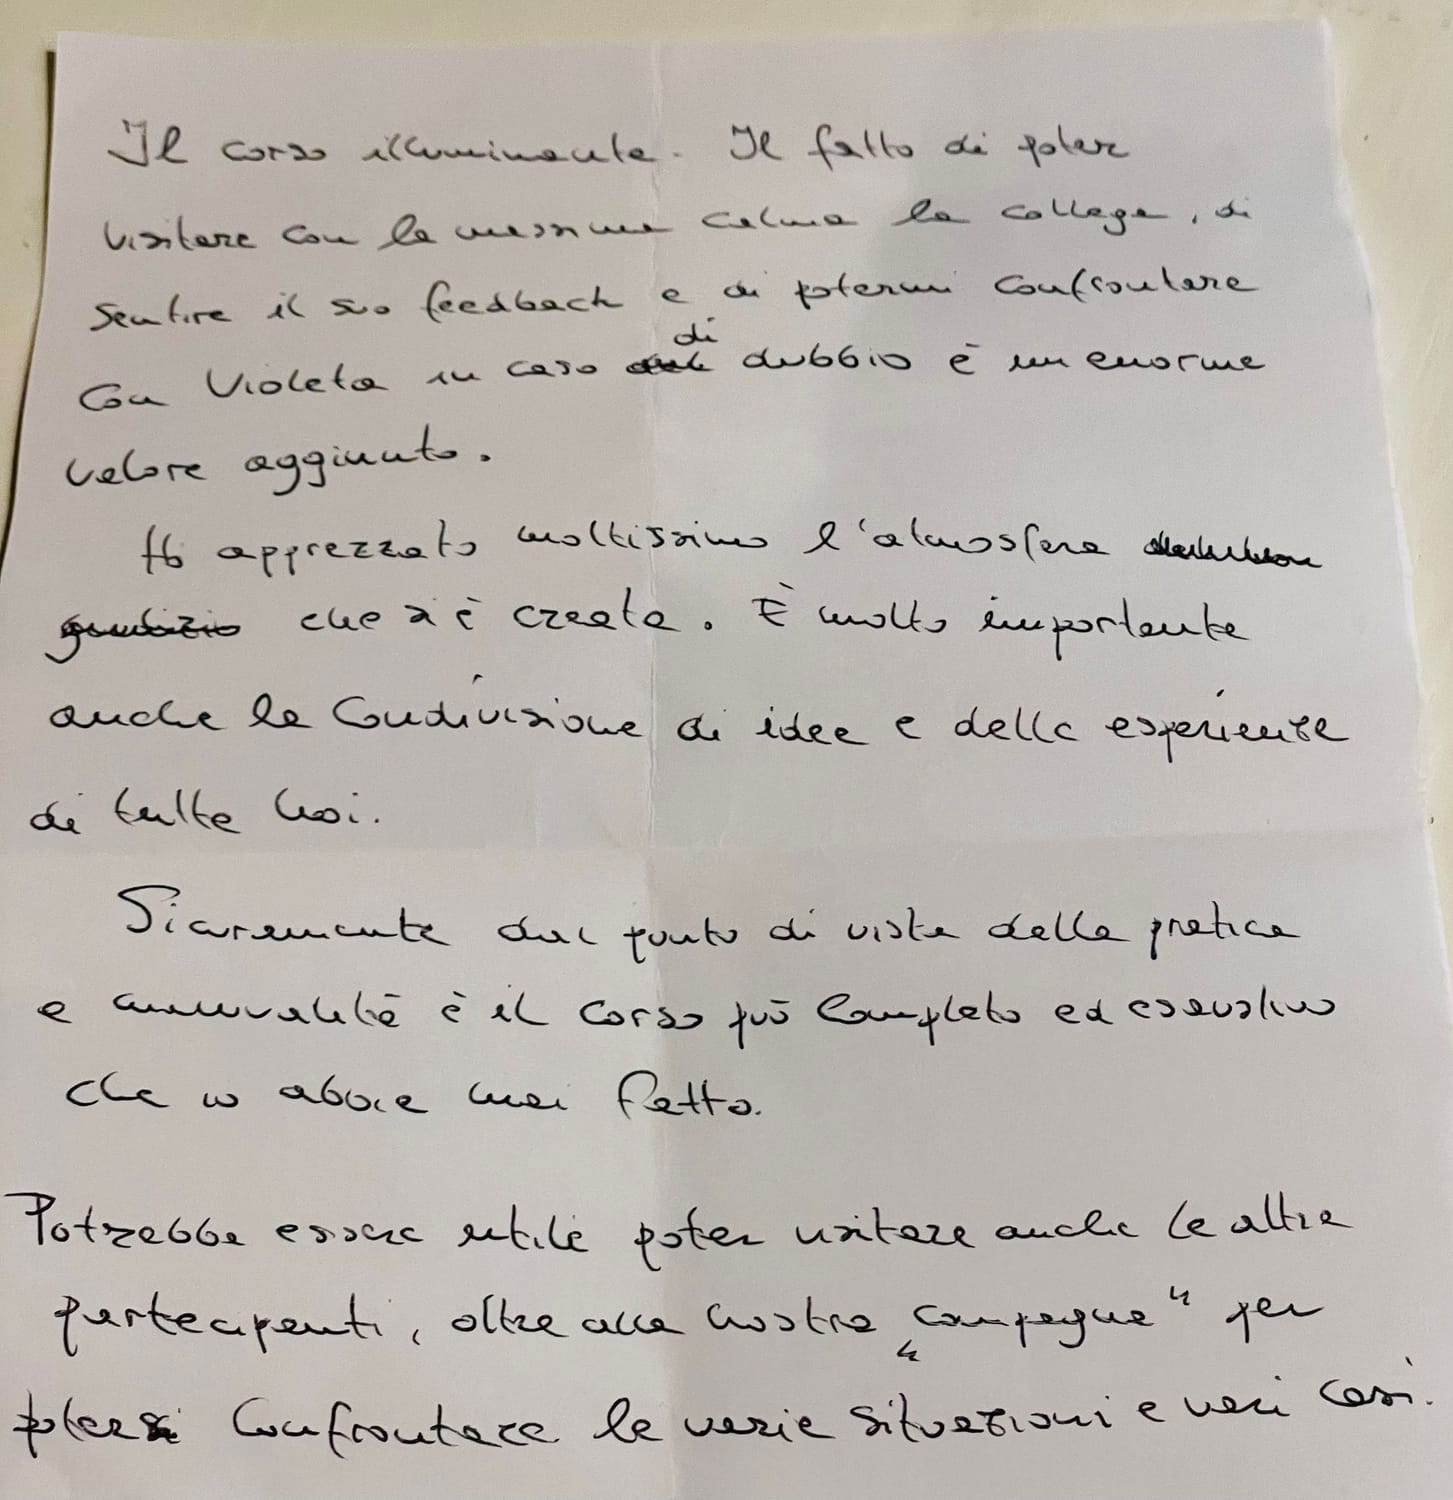 Il corso illuminante. Il fatto di poter
visitare con la massima calma la collega, di
sentire il suo feedback e di potermi confrontare
con Violeta in caso di dubbio è un enorme
valore aggiunto.
Ho apprezzato moltissimo l'atmosfera
giudizio che si è creata. È molto importante
anche la condivisione di idee e delle esperienze
di tutte noi.
Sicuramente dal punto di vista della pratica
e manualità è il corso più completo ed esaustivo
che io abbia mai fatto.
Potrebbe essere utile poter visitare anche le altre
partecipanti, oltre alla nostra "compagna" per
poter confrontare le varie situazioni e vari casi.